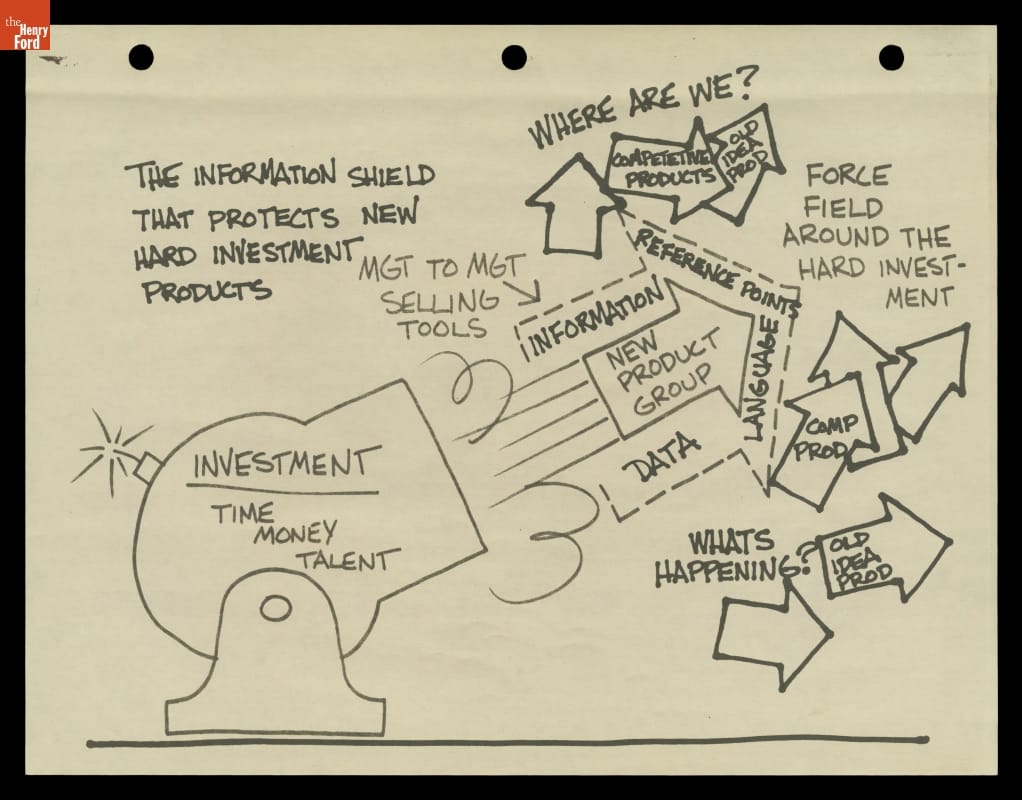 the
Henry
Ford
THE INFORMATION SHIELD
THAT PROTECTS NEW
HARD INVESTMENT
PRODUCTS
WHERE ARE WE?
COMPETETIVE
PRODUCTS
OLD
IDEA
PROD
FORCE
FIELD
AROUND THE
HARD INVEST-
MENT
MGT TO MGT
SELLING
TOOLS
REFERENCE POINTS
INFORMATION
LANGUAGE
NEW
PRODUCT
GROUP
DATA
COMP
PROD
INVESTMENT
TIME
MONEY
TALENT
WHATS
HAPPENING?
OLD
IDEA
PROD